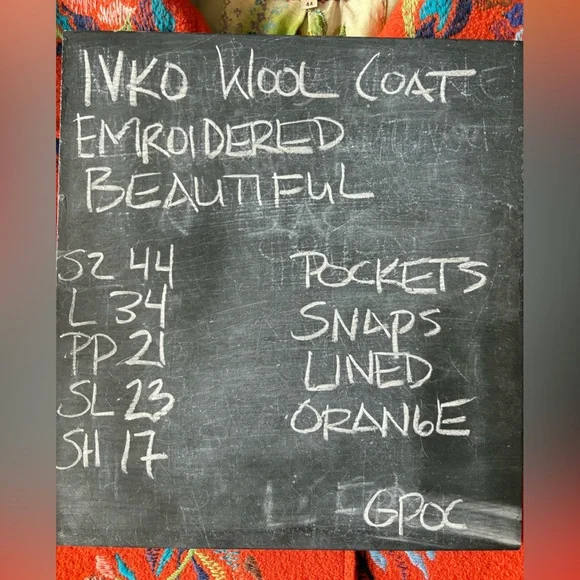 44
IVKO WOOL COAT
EMROIDERED
BEAUTIFUL
SZ 44
L 34
PP 21
SL 23
SH 17
POCKETS
SNAPS
LINED
ORANGE
GPOC